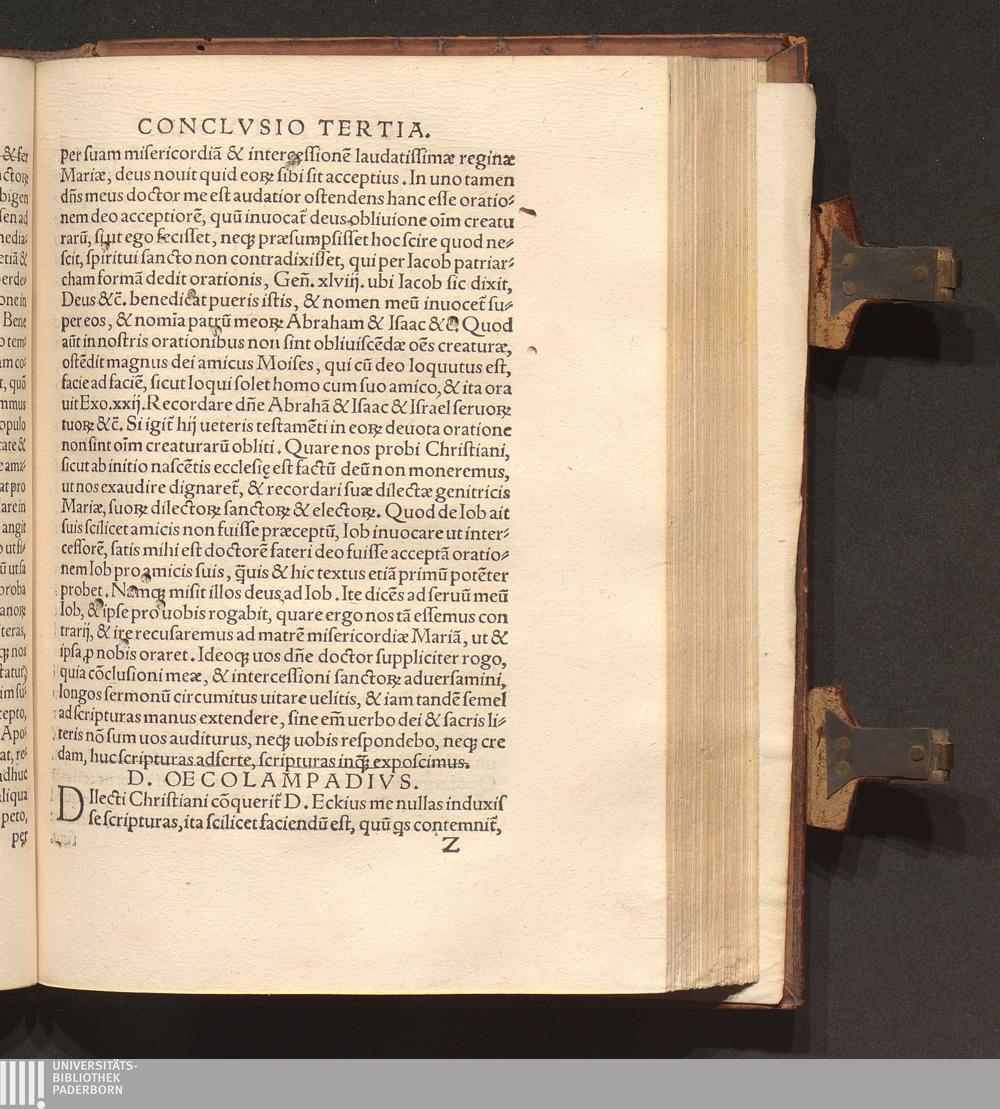 CONCLVSIO TERTIA.
per ſuam miſericordiā & interceſſionē laudatiſſimæ reginæ
Mariæ, deus nouit quid eoꝝ ſibi ſit acceptius. In uno tamen
dn̄s meus doctor me eſt audatior oſtendens hanc eſſe oratio⸗
nem deo acceptiorē, quū inuocat̃ deus obliuione oīm creatu
rarū, ſi ut ego feciſſet, neqꝫ præſumpſiſſet hoc ſcire quod ne⸗
ſcit, ſpiritui ſancto non contradixiſſet, qui per Iacob patriar⸗
cham formā dedit orationis, Geñ. xlviij. ubi Iacob ſic dixit,
Deus &c̃. benedicat pueris iſtis, & nomen meū inuocet̃ ſu⸗
per eos, & nomīa patrū meoꝝ Abraham & Iſaac &c̃. Quod
aūt in noſtris orationibus non ſint obliuiſcēdæ oēs creaturæ,
oſtēdit magnus dei amicus Moiſes, qui cū deo loquutus eſt,
facie ad faciē, ſicut loqui ſolet homo cum ſuo amico, & ita ora
uit Exo.xxij. Recordare dn̄e Abrahā & Iſaac & Iſrael ſeruoꝝ
tuoꝝ &c̃. Si igit̃ hij ueteris teſtamēti in eoꝝ deuota oratione
non ſint oīm creaturarū obliti. Quare nos probi Chriſtiani,
ſicut ab initio naſcētis eccleſię eſt factū deū non moneremus,
ut nos exaudire dignaret̃, & recordari ſuæ dilectæ genitricis
Mariæ, ſuoꝝ dilectoꝝ ſanctoꝝ & electoꝝ. Quod de Iob ait
ſuis ſcilicet amicis non fuiſſe præceptū, Iob inuocare ut inter⸗
ceſſorē, ſatis mihi eſt doctorē fateri deo fuiſſe acceptā oratio⸗
nem Iob pro amicis ſuis, q̄uis & hic textus etiā primū potēter
probet. Namqꝫ miſit illos deus ad Iob. Ite dicēs ad ſeruū meū
Iob, & ipſe pro uobis rogabit, quare ergo nos tā eſſemus con
trarij, & ire recuſaremus ad matrē miſericordiæ Mariā, ut &
ipſa ꝓ nobis oraret. Ideoqꝫ uos dn̄e doctor ſuppliciter rogo,
quia cōcluſioni meæ, & interceſſioni ſanctoꝝ aduerſamini,
longos ſermonū circumitus uitare uelitis, & iam tandē ſemel
ad ſcripturas manus extendere, ſine em̄ uerbo dei & ſacris li⸗
teris nō ſum uos auditurus, neqꝫ uobis reſpondebo, neqꝫ cre
dam, huc ſcripturas adferte, ſcripturas inqꝫ expoſcimus.
D. OECOLAMPADIVS.
DIlecti Chriſtiani cōquerit̃ D. Eckius me nullas induxiſ
ſe ſcripturas, ita ſcilicet faciendū eſt, quū qs contemnit̃,
Z
& fer
ctoꝝ
bigen
ſen ad
media⸗
etiā &
erde⸗
one in
Bene
o tem⸗
am co⸗
t, quō
mmus
opulo
tate &
e ama⸗
at pro
lare in
angit
ut ſi⸗
ū ut ſa
proba
anoꝝ
teras,
qꝫ nos
tatur)
im ſu⸗
cepto,
Apo⸗
at, re⸗
dhuc
liqua
peto,
per
UNIVERSITÄTS-
BIBLIOTHEK
PADERBORN